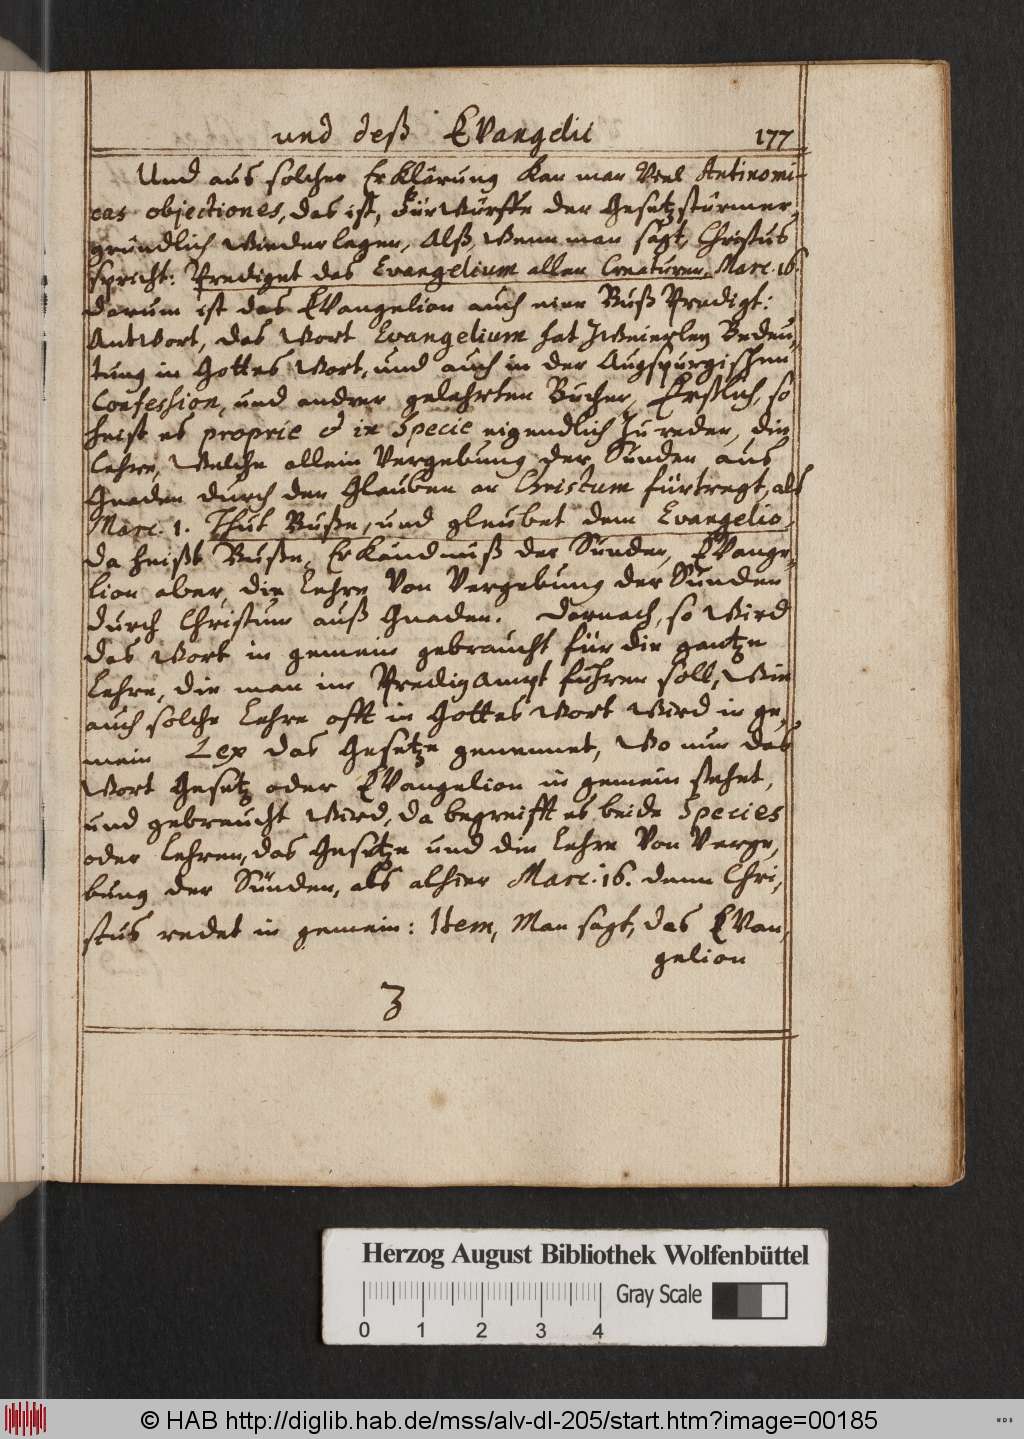 und deß EVangelii 177
Und aus solcher Erklärung kan man Viel Antinomi-
cas objectiones, das ist, FürWürffe der Gesetzstürmer,
gründlich wiederlegen, Alß, Wenn man sagt, Christus
spricht: Prediget das Evangelium allen Creaturen, Marc. 16.
darum ist das EVangelion auch eine Buß Predigt:
AntWort, das Wort Evangelium hat zWeierley Bedeu,
tung in Gottes Wort, und auch in der Augspurgischen
Confession, und andrer gelehrten Bücher, Erstlich, so
heist es proprie & in Specie eigendlich zu reden, die
Lehre, Welche allein Vergebung der Sünden aus
Gnaden durch den Glauben an Christum fürtregt, als
Marc. 1. Thut Busse, und gleubet dem Evangelio,
da heisst Busse, Erkändnüß der Sünden, EVange,
lion aber, die Lehre Von Vergebung der Sünden
durch Christum auß Gnaden. Darnach, so Wird
das Wort in gemein gebraucht für die gantze
Lehre, die man im PredigAmpt führen soll, Wie
auch solche Lehre offt in Gottes Wort Wird in ge,
mein Lex das Gesetze genennet, Wo nun das
Wort Gesetz oder EVangelion in gemein stehet,
und gebraucht Wird, da begreifft es beide Species
oder Lehren, das Gesetze und die Lehre Von Verge,
bung der Sünden, als alhier Marc. 16. denn Chri,
stus redet in gemein: Item, Man sagt, das EVan,
gelion
Z
Herzog August Bibliothek Wolfenbüttel
Gray Scale
0 1 2 3 4
© HAB http://diglib.hab.de/mss/alv-dl-205/start.htm?image=00185